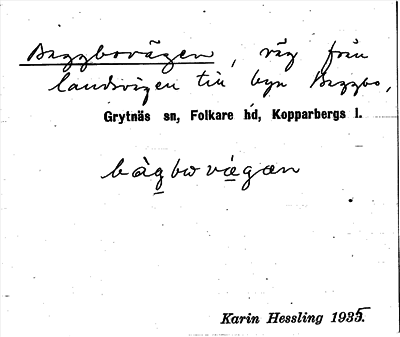 Baggbovägen, väg från
landsvägen till byn Baggbo,
Grytnäs sn, Folkare hd, Kopparbergs l.
bàg̲bωvæ̲gæn
Karin Hessling 1935.